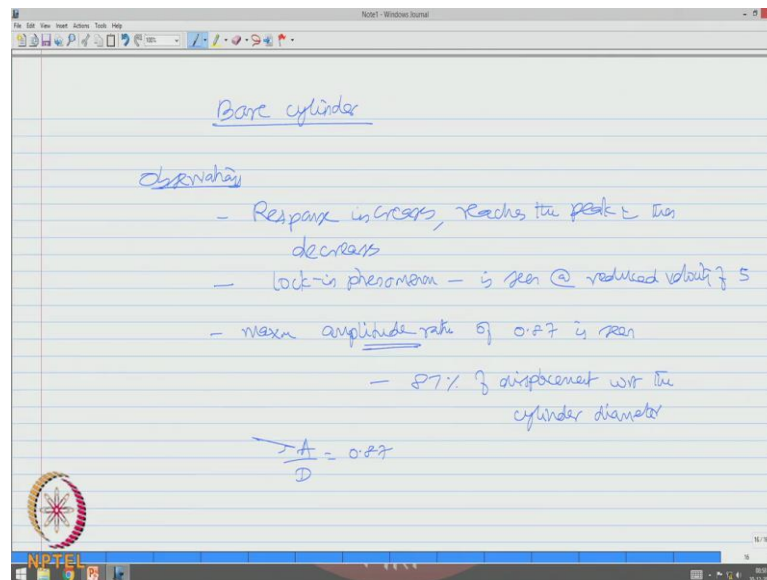 Note1 - Windows Journal
File Edit View Insert Actions Tools Help
Bare cylinder
Observations
- Response increases, reaches the peak & then
decreases
- lock-in phenomenon - is seen @ reduced velocity of 5
- maxm amplitude ratio of 0.87 is seen
- 87% of displacement wrt the
cylinder diameter
A/D = 0.87
NPTEL